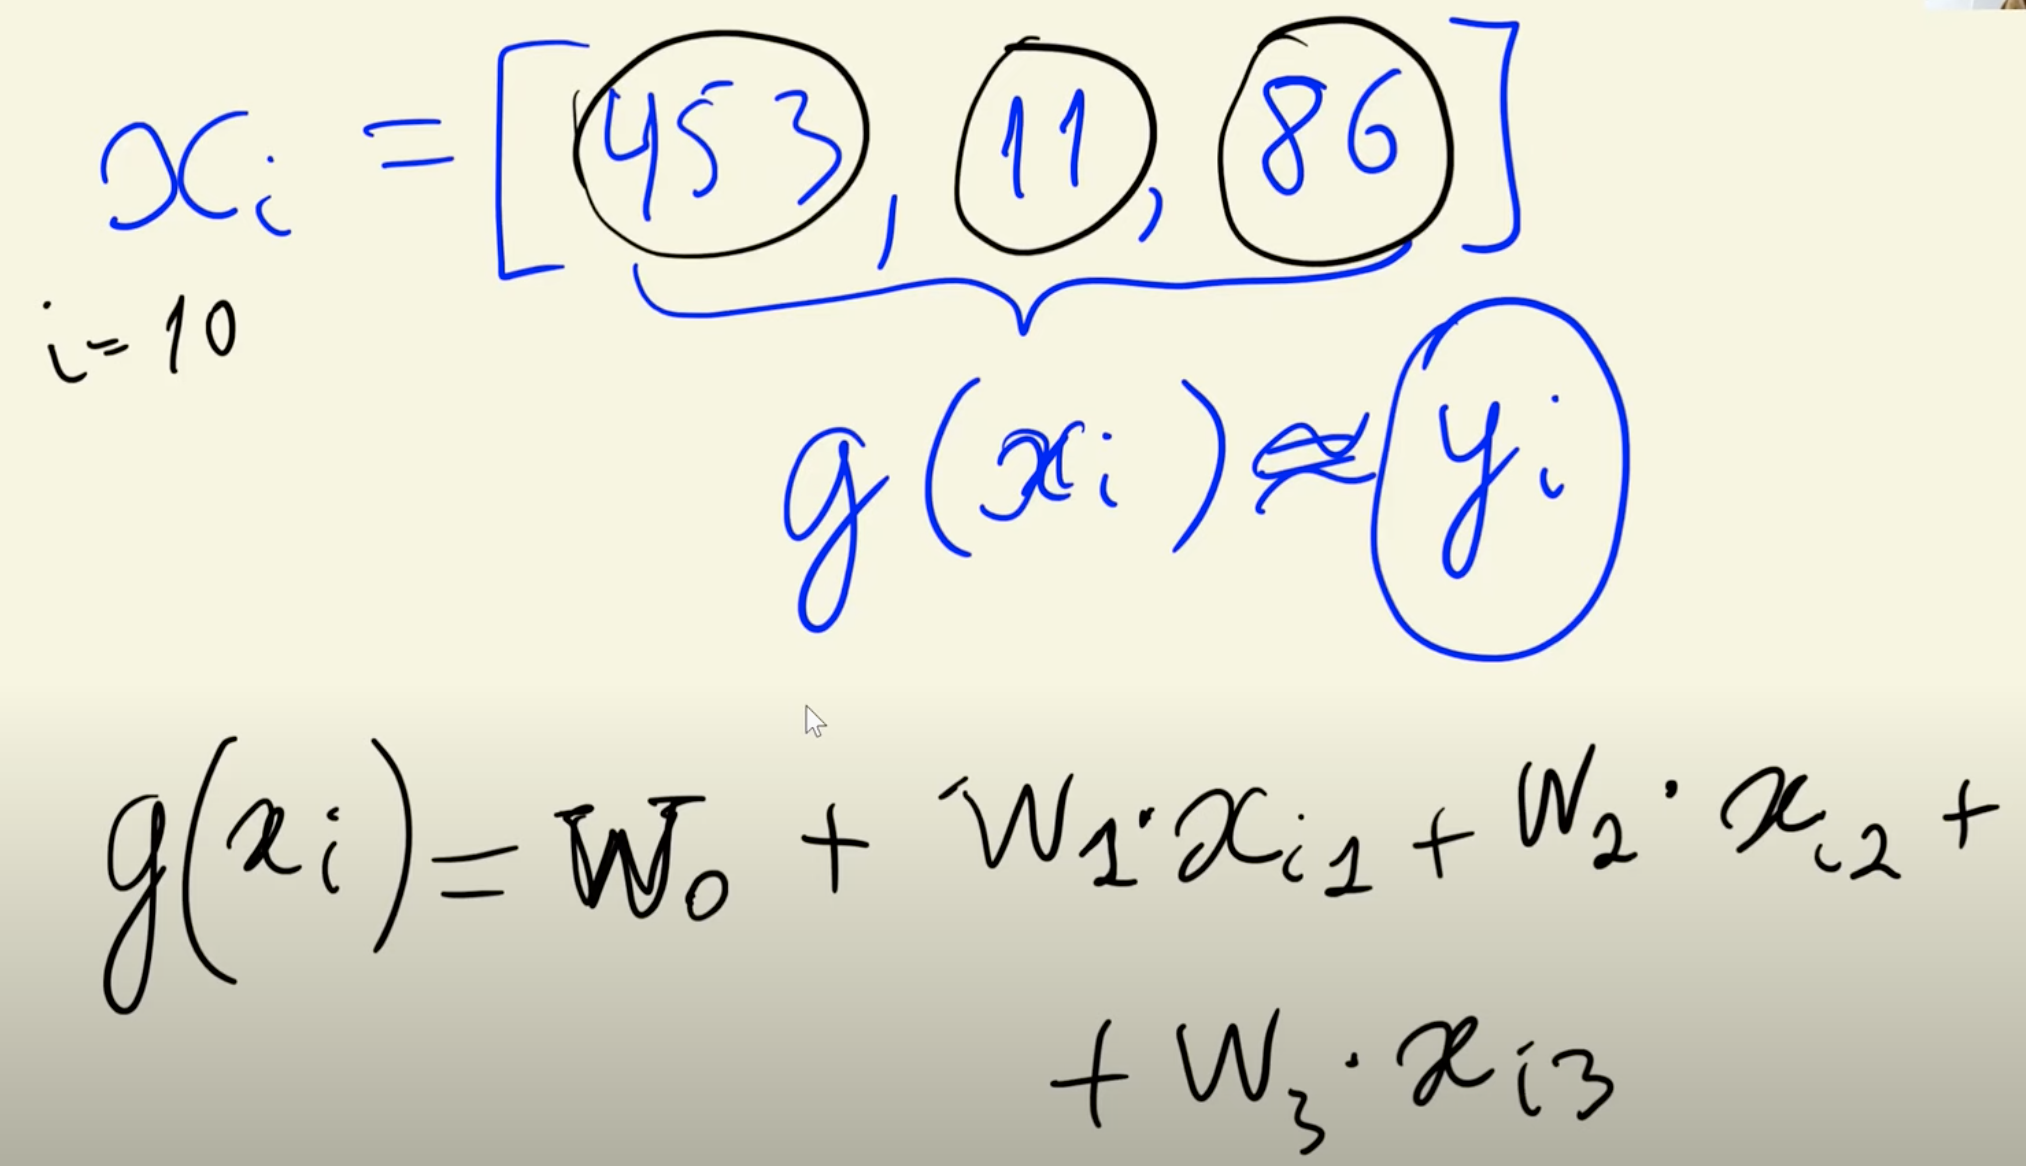 xᵢ = [453, 11, 86]
i = 10
g(xᵢ) ≈ yᵢ
g(xᵢ) = W₀ + W₁·xᵢ₁ + W₂·xᵢ₂ +
+ W₃·xᵢ₃